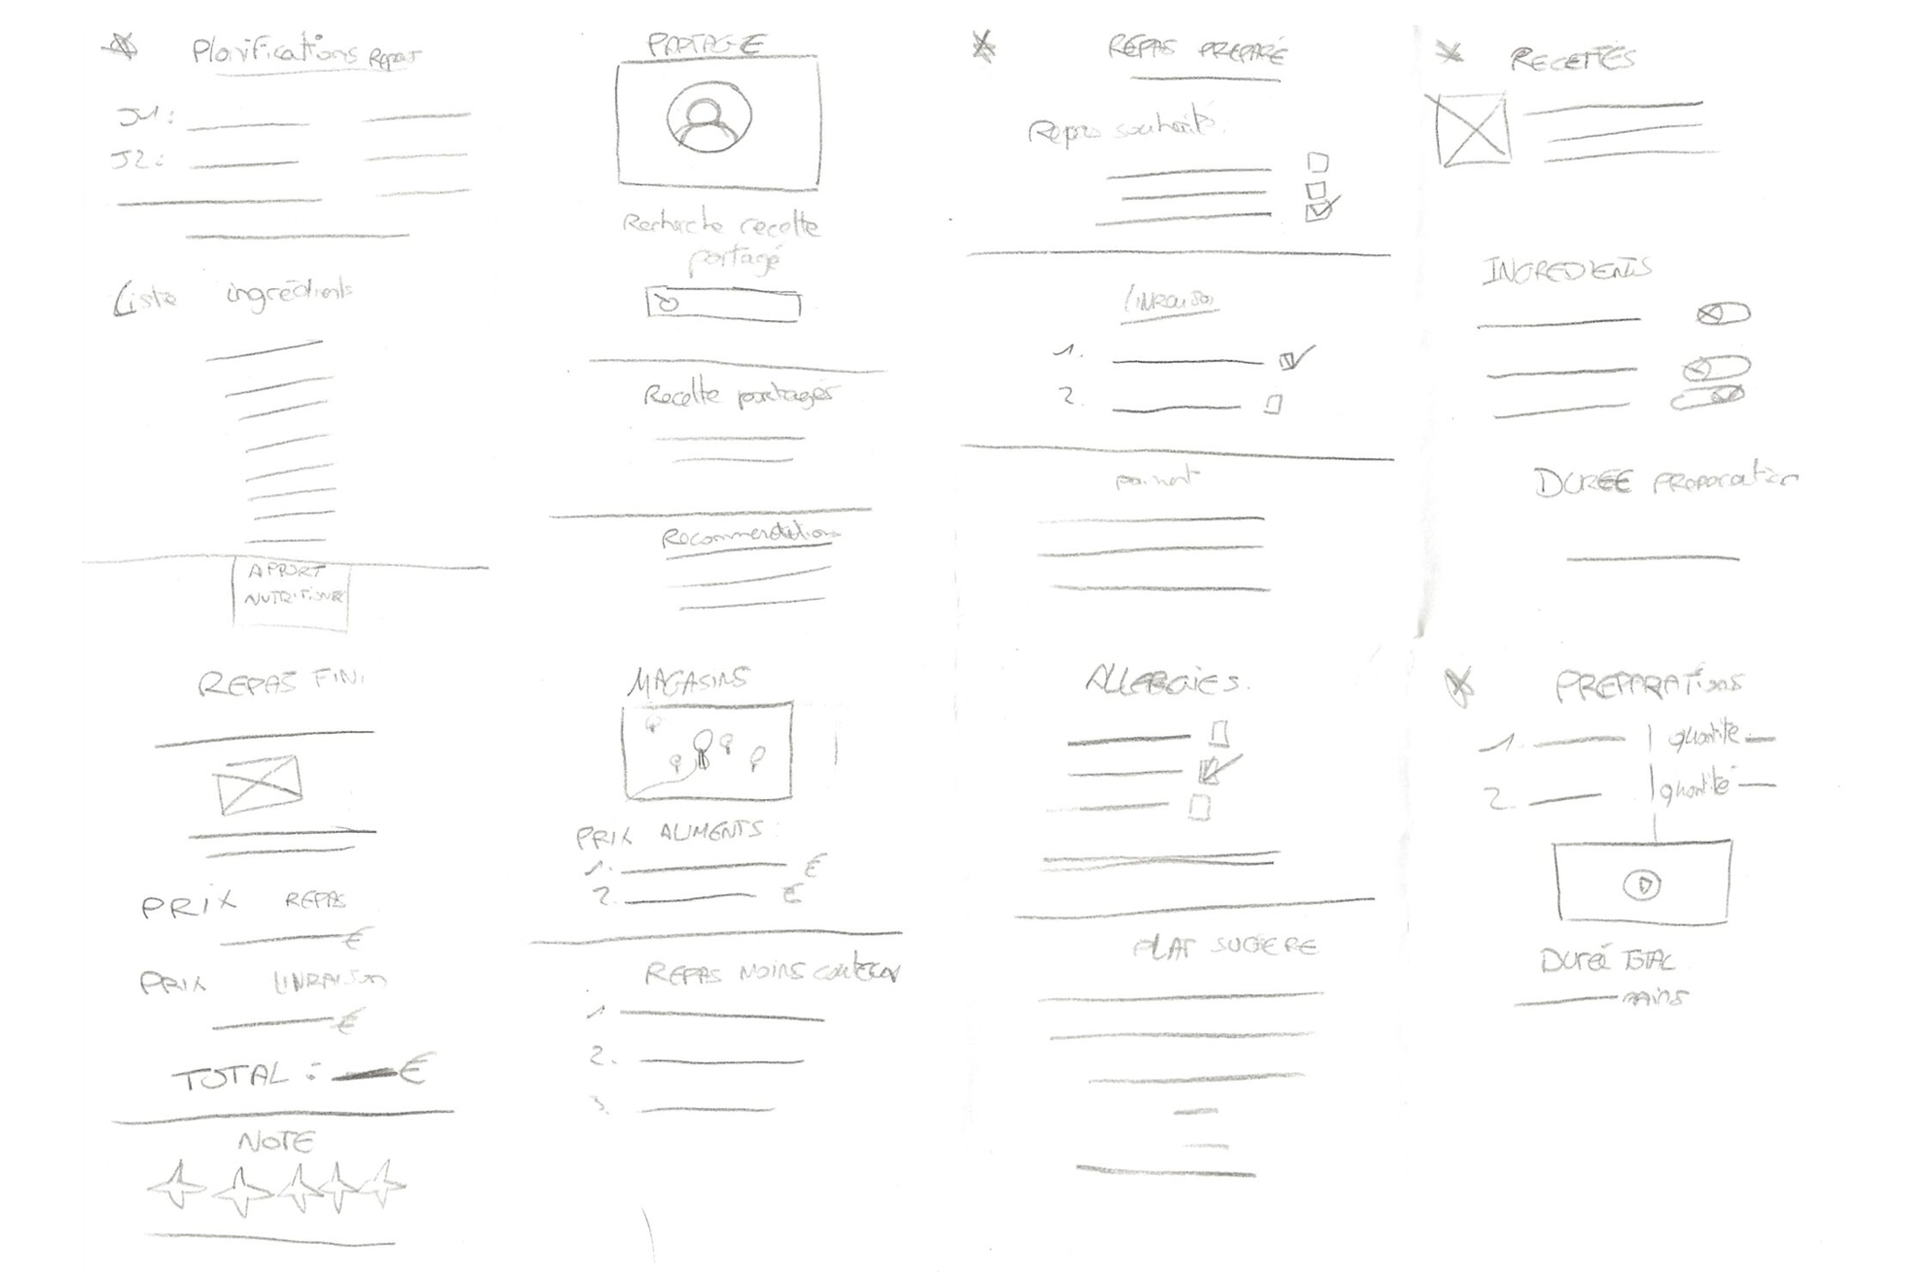 Planifications Repas
J1:
J2:
Liste ingrédients
APPORT
NUTRITIONEL
PARTAGE
Recherche recette
partagé
Recette partagés
Recommendations
REPAS PREPARÉ
Repas souhaité.
Livraison
1.
2.
RECETTES
INGREDIENTS
DUREE PREPARATION
REPAS FINI
PRIX REPAS
€
PRIX LIVRAISON
€
TOTAL : €
NOTE
MAGASINS
PRIX ALIMENTS :
1. €
2. €
REPAS MOINS
1
2.
3.
ALLERGIES.
PLAT SUGERE
PREPARATIONS
1. quantité
2. quantité
DUREE TOTAL
mins